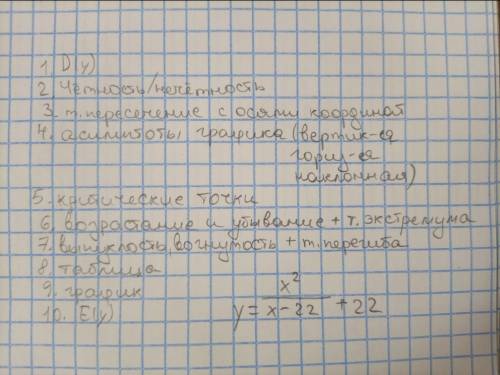 1. D(y)
2 Чётность/нечётность
3. т. пересечение с осями координат
4. асимптоты графика (вертик-ая
гориз-ая
наклонная)
5. критические точки
6. возрастание и убывание + т. экстремума
7. выпуклость, вогнутость + т. перегиба
8. таблица
9. график
10. E(y)
y = x²/(x-22) + 22